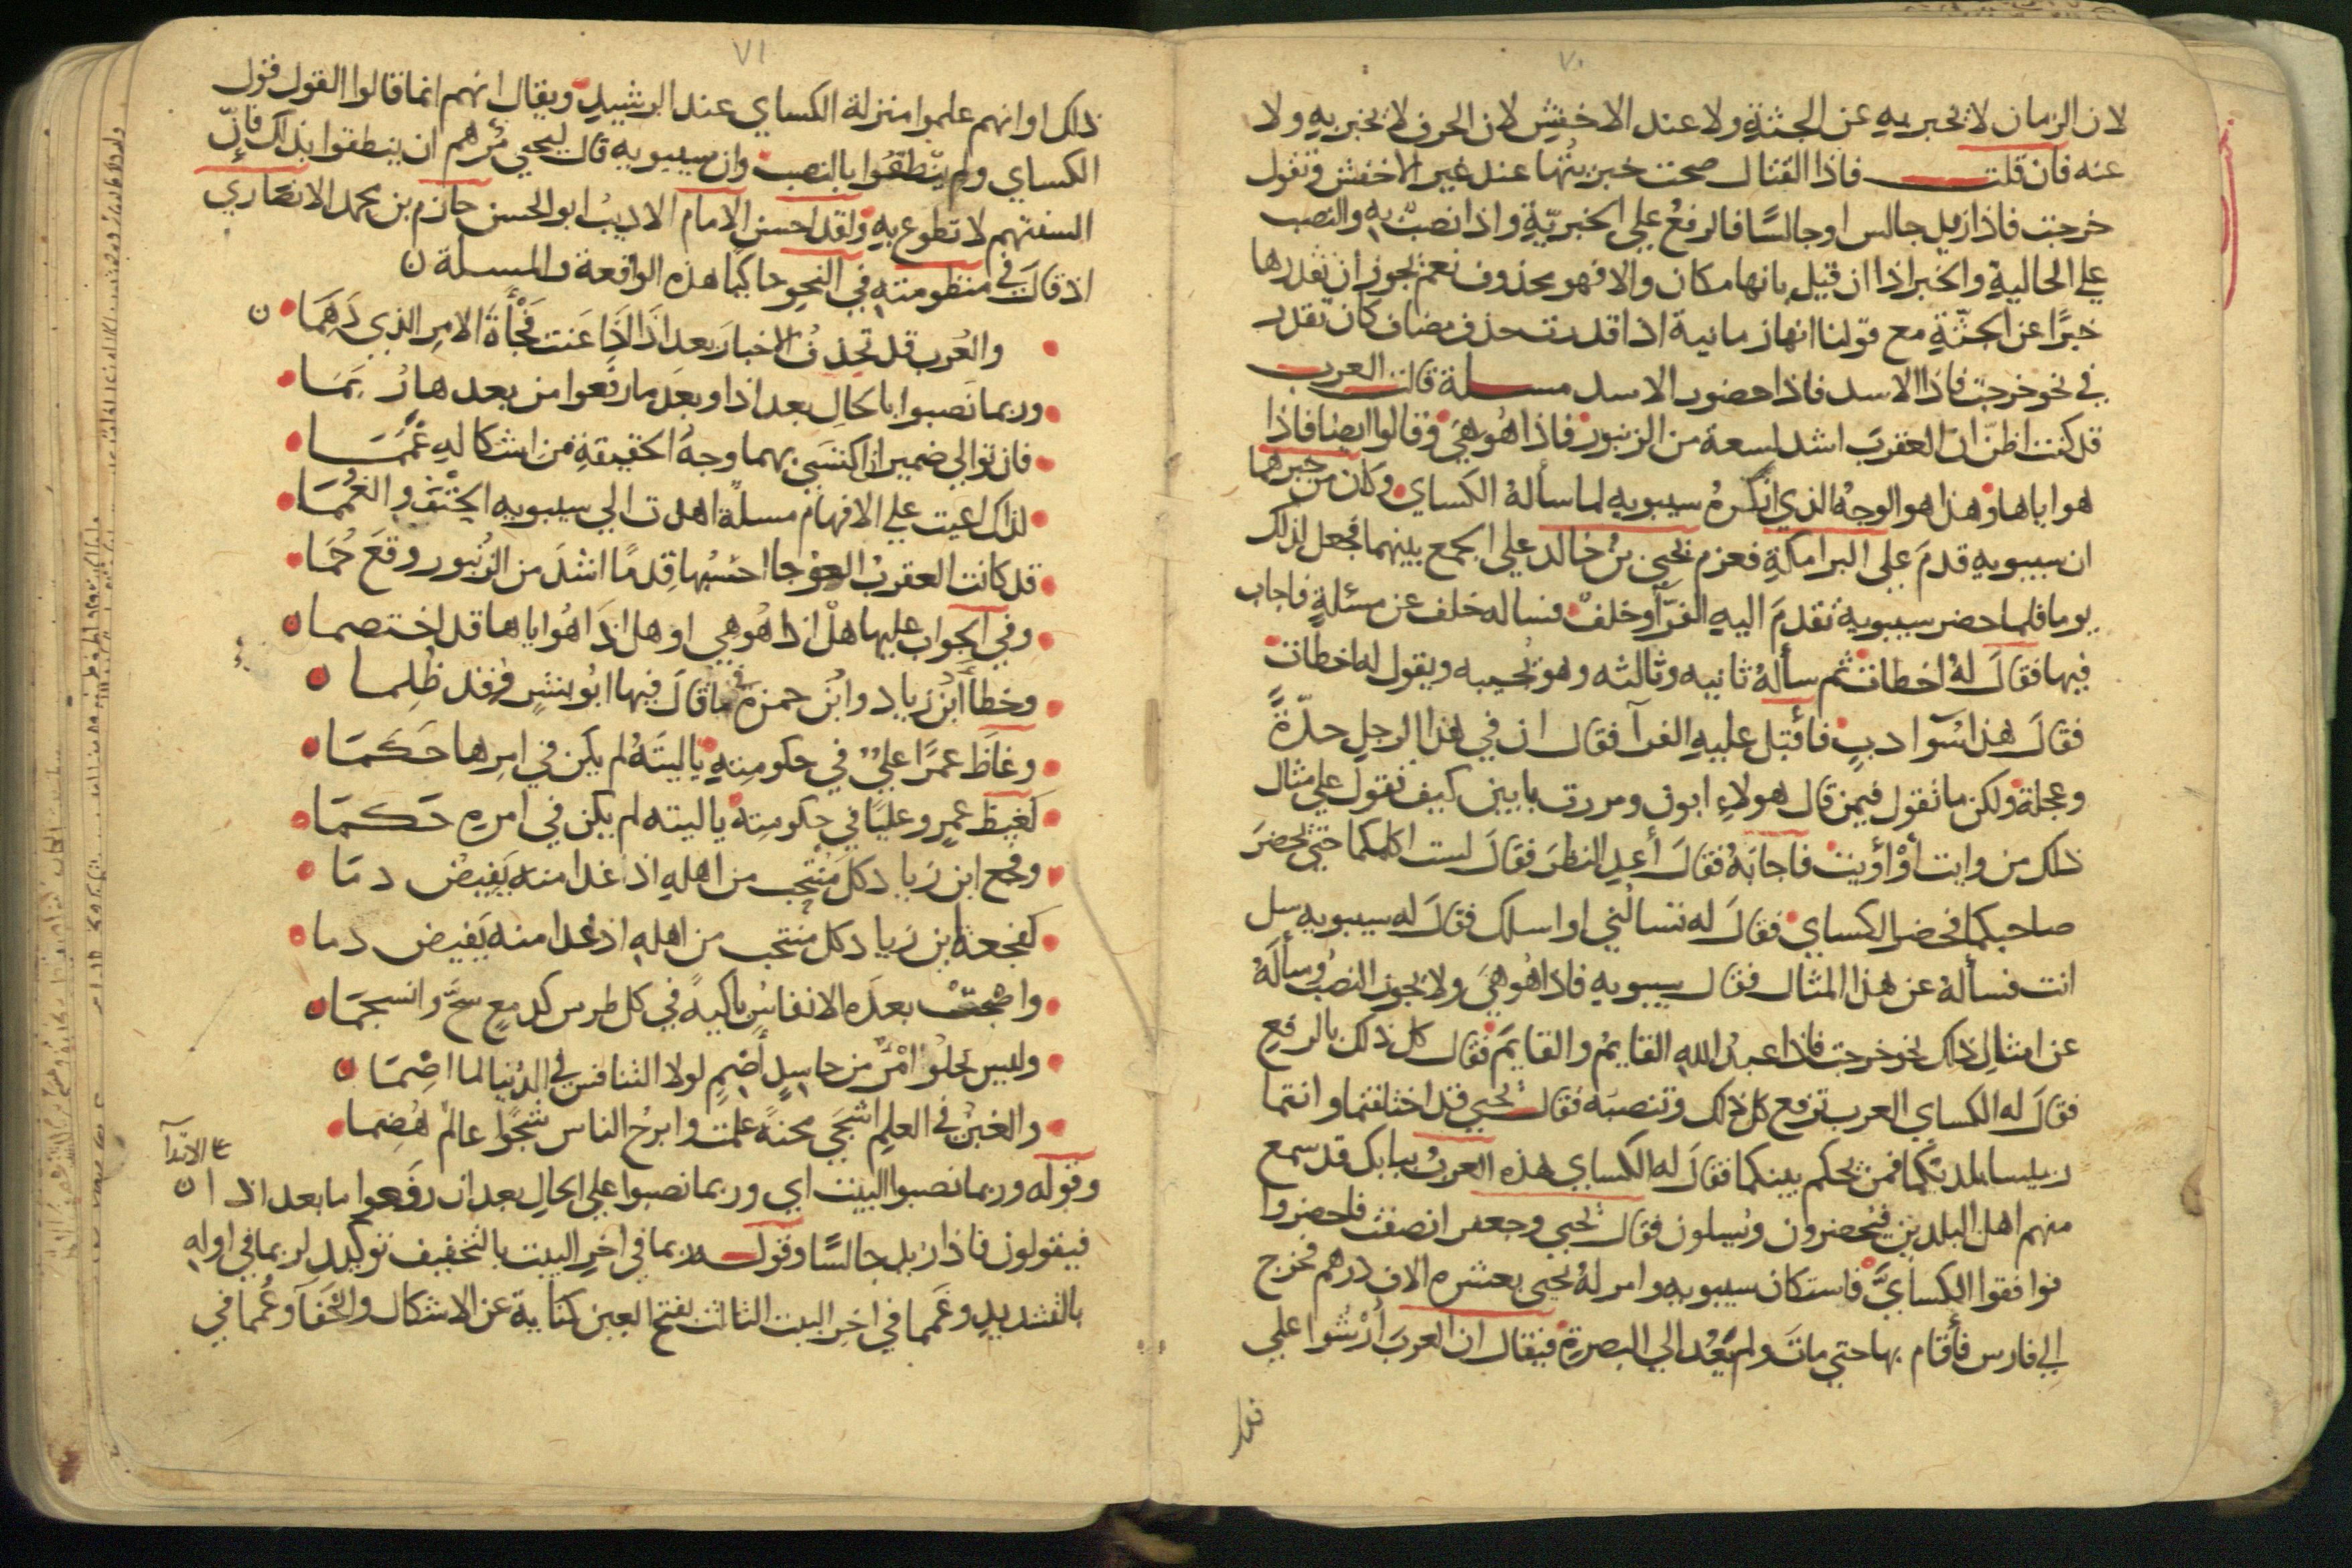 ٧٠
لان الزمان لا يخبر به عن الجثة ولا عند الاخفش لان الحرف لا يخبر به ولا
عنه فان قلت فاذا القتال صحت خبريتها عند غير الاخفش وتقول
خرجت فاذا زيد جالس او جالسًا فالرفعُ علي الخبريّةِ واذا نصبٌ به والنصب
علي الحالية والخبر اذا ان قيل بانها مكان والا فهو محذوف نعم يجوز ان تقدرها
خبرًا عن الجثّةِ مع قولنا انها زمانية اذا قدرت حذف مضاف كان تقدر
في نحو خرجت فاذا الاسد فاذا حضور الاسد مسلة قالت العرب
قد كنت اظنّ انّ العقربَ اشد لسعة من الزنبور فاذا هُو هيَ وقالوا ايضا فاذا
هو اياها وهذا هو الوجهُ الذي انكرهُ سيبويه لما سألهُ الكساي وكان من خبرهما
ان سيبويه قدمَ علي البرامكةِ فعزم يحيي بنُ خالد علي الجمع بينهما فجعل لذلك
يوما فلما حضر سيبويه تقدمَ اليه الفرّآ وخلفٌ فساله خلف عن مسئلةٍ فاجاب
فيها فقالَ لهُ اخطات ثم سألهُ ثانيه وثالثه وهو يُجيبه ويقول له اخطات
فقالَ هذا سُوٓادبٍ فأقبل عليهِ الفرآ فقال ان في هذا الرجلِ حدّةً
وعجلة ولكن ما تقول فيمن قال هولاءِ ابون ومررت بابين كيف تقول علي مثال
ذلك من وايت أوْ أويت فاجابهُ فقالَ أعدِ النظرَ فقالَ لست اكلمكما حتي يحضرَ
صاحبكما فحضر الكساي فقالَ له تسالُني او اسلك فقالَ له سيبويه سل
انت فسألهُ عن هذا المثال فقال سيبويه فاذا هُو هيَ ولا يجوز النصبُ وسألهُ
عن امثالِ ذلك نحو خرجت فاذا عبدُ اللهِ القايمُ والقايمَ فقال كل ذلك بالرفعِ
فقالَ له الكساي العرب ترفع كل ذلك وتنصبَه فقال يحيي قد اختلفتما وانتما
رييسا بلديكما فمن يحكم بينكما فقالَ له الكساي هذه العربُ ببابك قد سمع
منهم اهل البلدين فيُحضرون ويُسلون فقال يحيي وجعفر انصفت فاحضروا
فوافقوا الكسايَّ فاستكان سيبويه وامر لهُ يحيي بعشره الاف درهم فخرج
الي فارس فأقام بها حتي ماتَ ولم يَعُد الي البصرةِ فيقال ان العربَ أُرْشُوا علي
٧١
ذلك او انهم علموا منزلة الكساي عند الرشيدِ ويقال انهم انما قالوا القول قول
الكساي ولم ينْطقُوا بالنصب وان سيبويه قال ليحيي مُرْهم ان ينطقوا بذلك فانّ
السنتهم لا تطوع بهِ ولقد احسن الامام الاديبُ ابو الحسن حازم بن محمد الانصاري
اذ قالَ في منظومتهِ في النحو حاكيا هذه الواقعة والمسلة ن
والعُرب قد تحذفُ الاخبارَ بعد اذَا اذَا عَنت فَجْأةَ الامرِ الذي دَهَمَا ن
وربما نَصبوا بالحالِ بعد اذا وبعدَ ما رفَعوا من بعدها رُبَمَا
فان توالي ضميران اكتسَي بهما وجهُ الحقيقةِ من اشكالهِ غَمَمَا
لذاك اعيت علي الافهام مسلةً اهدت الي سيبويه الحْتفَ والغُمَمَا
قد كانت العقربُ العوْجا احسُبها قِدمًا اشدَ من الزُنبور وقعَ حُمَا
وفي الجواب عليها هلْ اذا هُو هي او هل اذَا هُو اياها قد اختصما ن
وخطأَ ابْنُ زياد وابْنُ حمزة في ما قالَ فيها ابُو بشرٍ وقد ظُلِما ن
وغاظَ عمرًا عليٌّ في حكومتِهِ ياليتَهُ لم يكن في امرِها حَكَمَا
كغيظ عمرٍو عليًا في حكومتِه ياليته لم يكن في امرهِ حَكمَا
وفجع ابن زياد كل مُنْتحب من اهلهِ اذ غدا منه يَفيضُ دمَا
كفجعة ابن زياد كل منتحب من اهلهِ اذ غدا منه يَفيض دما
واصْبحَتْ بعدَه الانفاسُ باكيةً في كل طرس كدمعٍ سَحَّ وانسجمَا ن
وليس يَخلُو امْرٌ من حاسِدٍ أضِمٍ لولا التنافس في الدُنيا لما اضِمَا ن
والغبْنُ في العلمِ اشجَي محنةً علمت وابرحُ الناس شَجًوا عالمٌ هُضِما
وقوله وربما نصبوا البيت اي وربما نصبوا علي الحالِ بعد ان رفَعوا ما بعد اذا ن
علي الابتدآ
فيقولون فاذا زيد جالسًا وقوله ربما في اخرِ البيت بالتخفيف توكيد لربما في اولهِ
بالتشديدِ وغَمَما في اخرِ البيت الثالث بفتح العين كناية عن الاشكال والخفآ وغُمما في